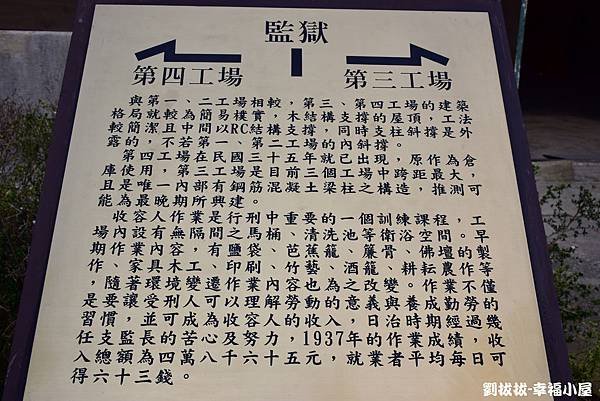 監獄
第四工場 第三工場
與第一、二工場相較，第三、第四工場的建築
格局就較為簡易樸實，木結構支撐的屋頂，工法
較簡潔且中間以RC結構支撐，同時支柱斜撐是外
露的，不若第一、第二工場的內斜撐。
第四工場在民國三十五年就已出現，原作為倉
庫使用，第三工場是目前三個工場中跨距最大，
且是唯一內部有鋼筋混凝土梁柱之構造，推測可
能為最晚期所興建。
收容人作業是行刑中重要的一個訓練課程，工
場內設有無隔間之馬桶、清洗池等衛浴空間。早
期作業內容，有鹽袋、芭蕉籠、簾骨、佛壇的製
作、家具木工、印刷、竹藝、酒籠、耕耘農作等
，隨著環境變遷作業內容也為之改變。作業不僅
是要讓受刑人可以理解勞動的意義與養成勤勞的
習慣，並可成為心容人的收入，日治時期經過幾
任支監長的苦心收及努力，1937年的作業成績，收
入總額為四萬八千六十五元，就業者平均每日可
得六十三錢。
劉拔拔-幸福小屋